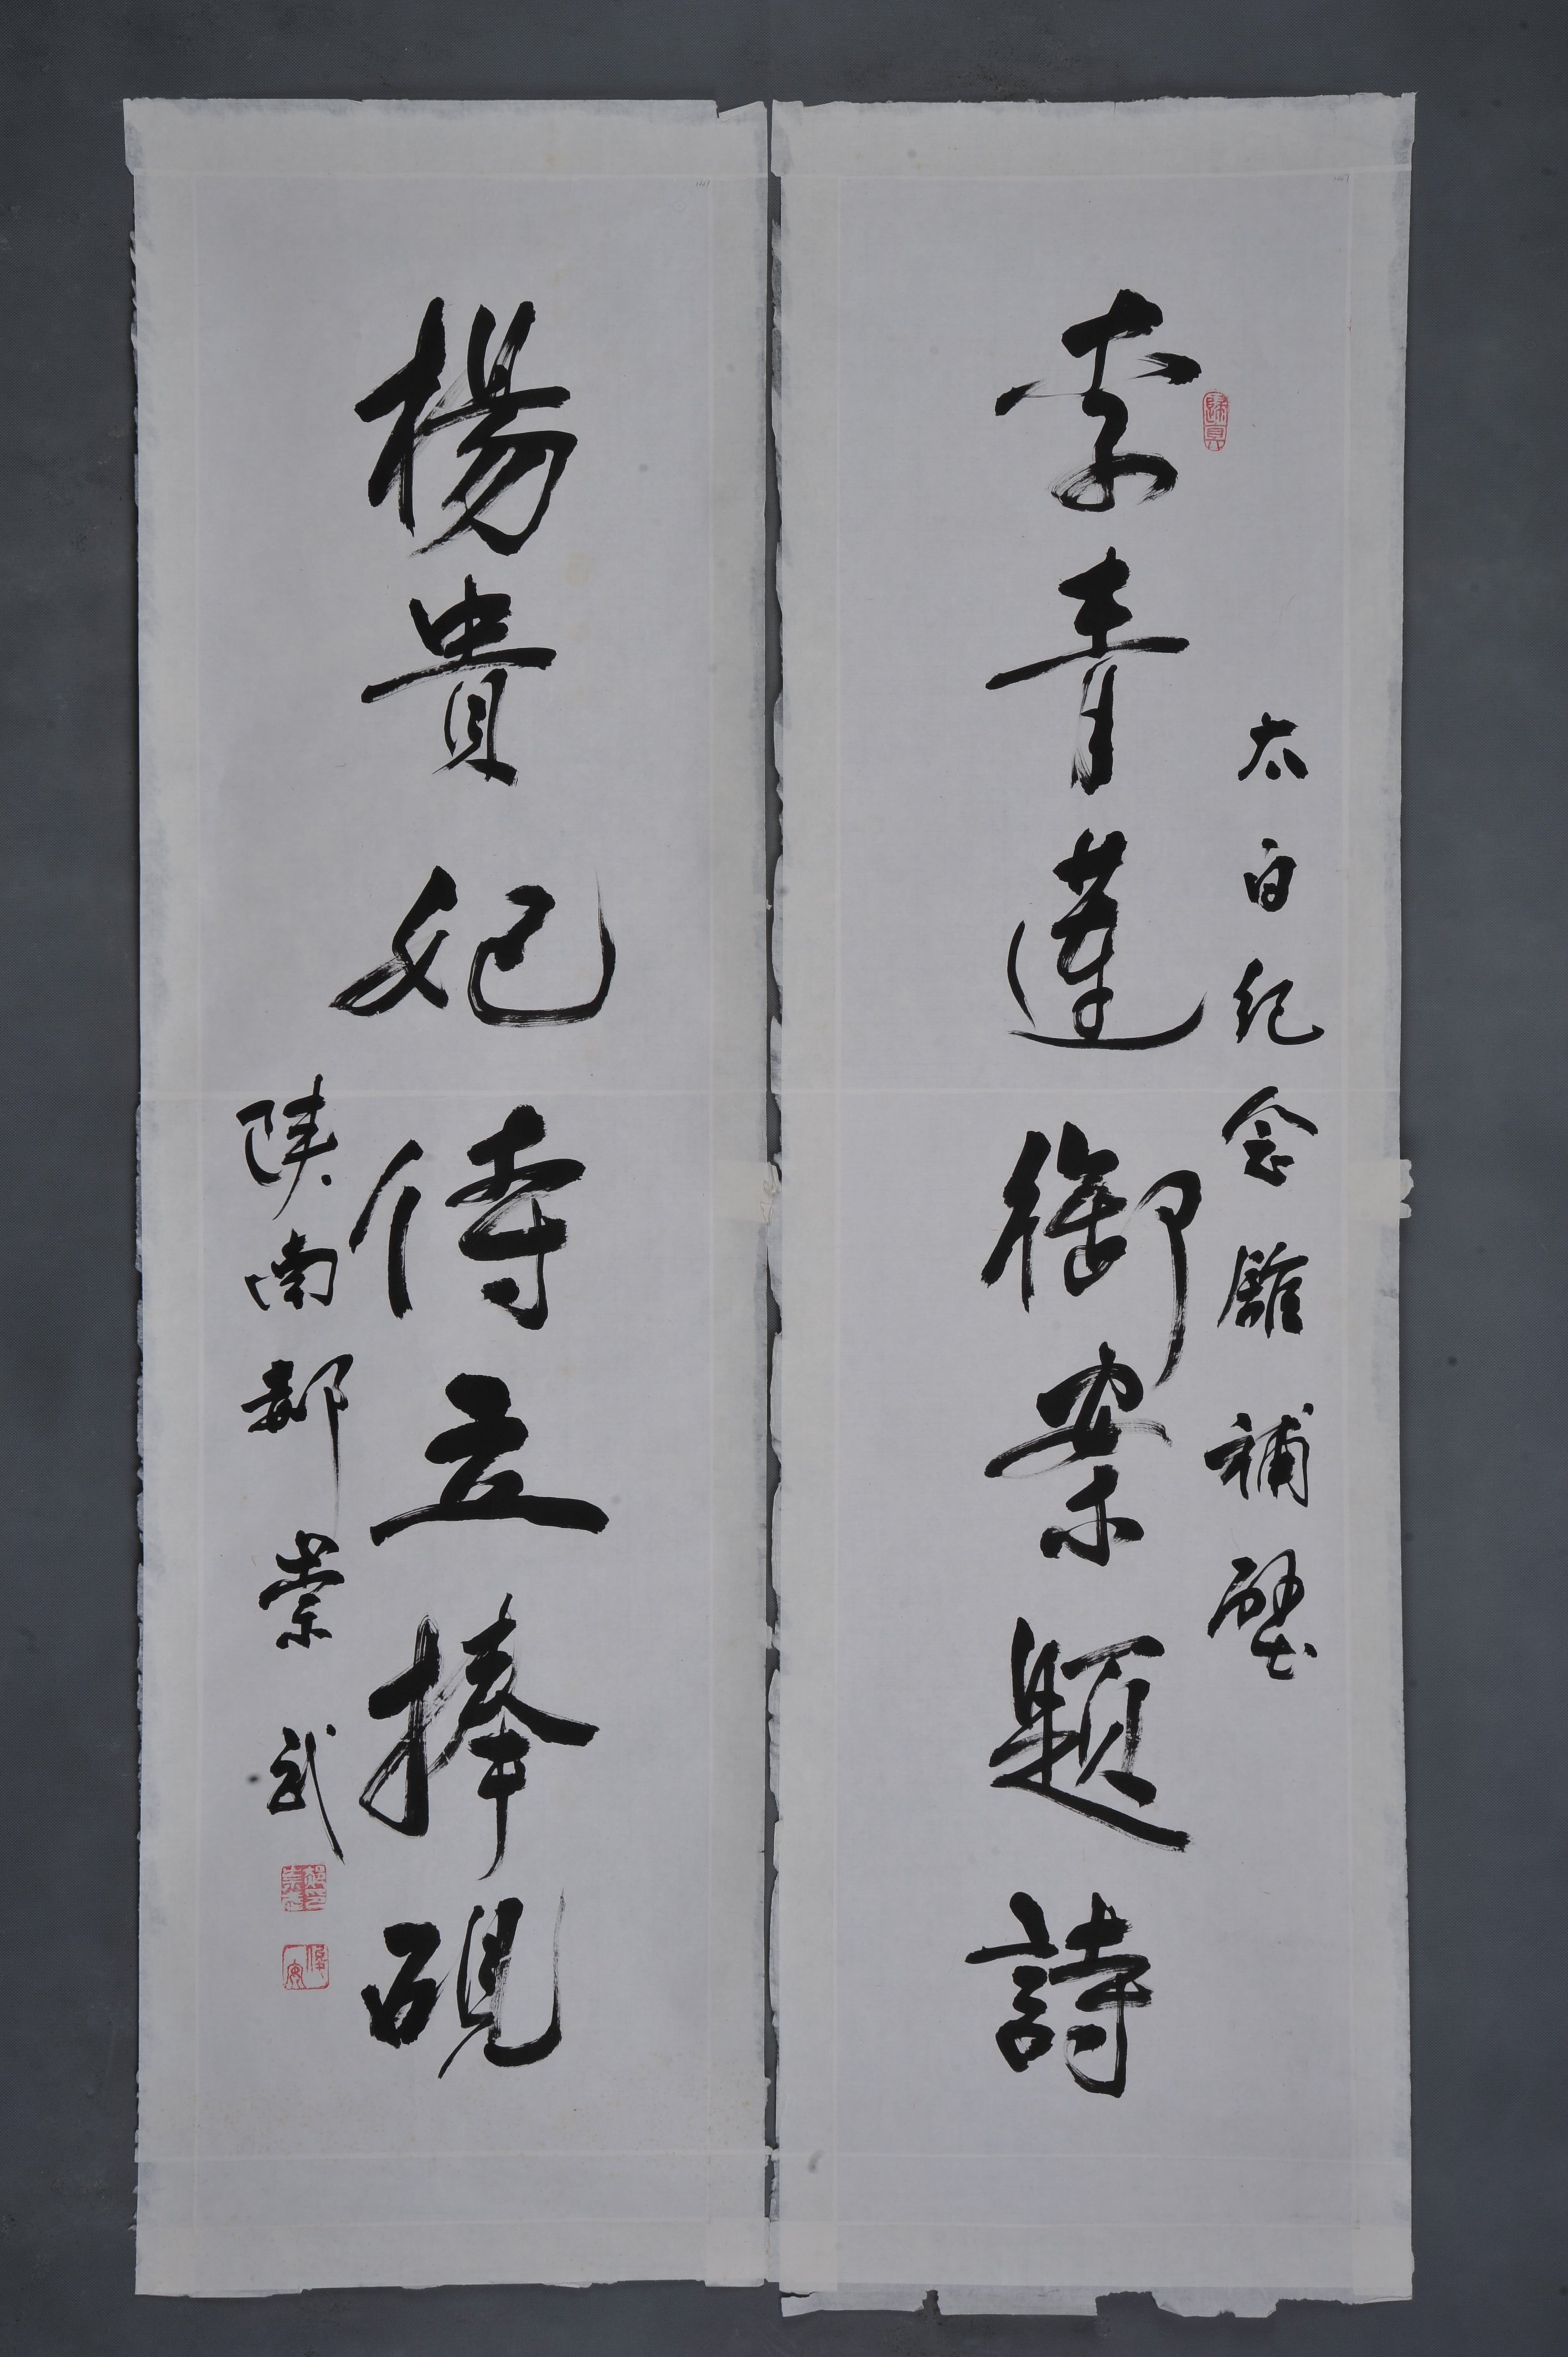 太白纪念館補壁
李青蓮御案題詩
楊貴妃侍立捧硯
陕南郝崇武